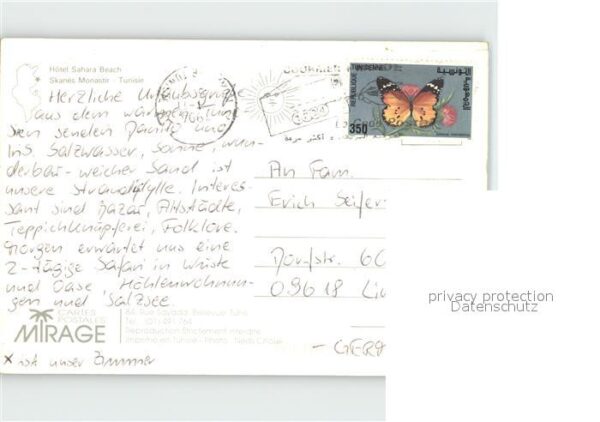 Hôtel Sahara Beach
Skanès Monastir - Tunisie
Herzliche Urlaubsgrüße
aus dem warmen Tune-
sien senden und
Ins. Salzwasser, Sonne, wun-
derbar-weicher Sand ist
unsere Strandidylle. Interes-
sant sind Bazar, Altstädte,
Teppichknüpferei, Folklore.
Morgen erwartet uns eine
2-tägige Safari in Wüste
und Oase, Höhlenwohnun-
gen und Salzsee.
CARTES
POSTALES
MIRAGE
Reproduction Strictement Interdite
Imprimé en Tunisie - Photo
x ist unser Zimmer
REPUBLIQUE TUNISIENNE
350
An Fam.
Erich Seifer
Dorfstr. 60
09618
privacy protection
Datenschutz